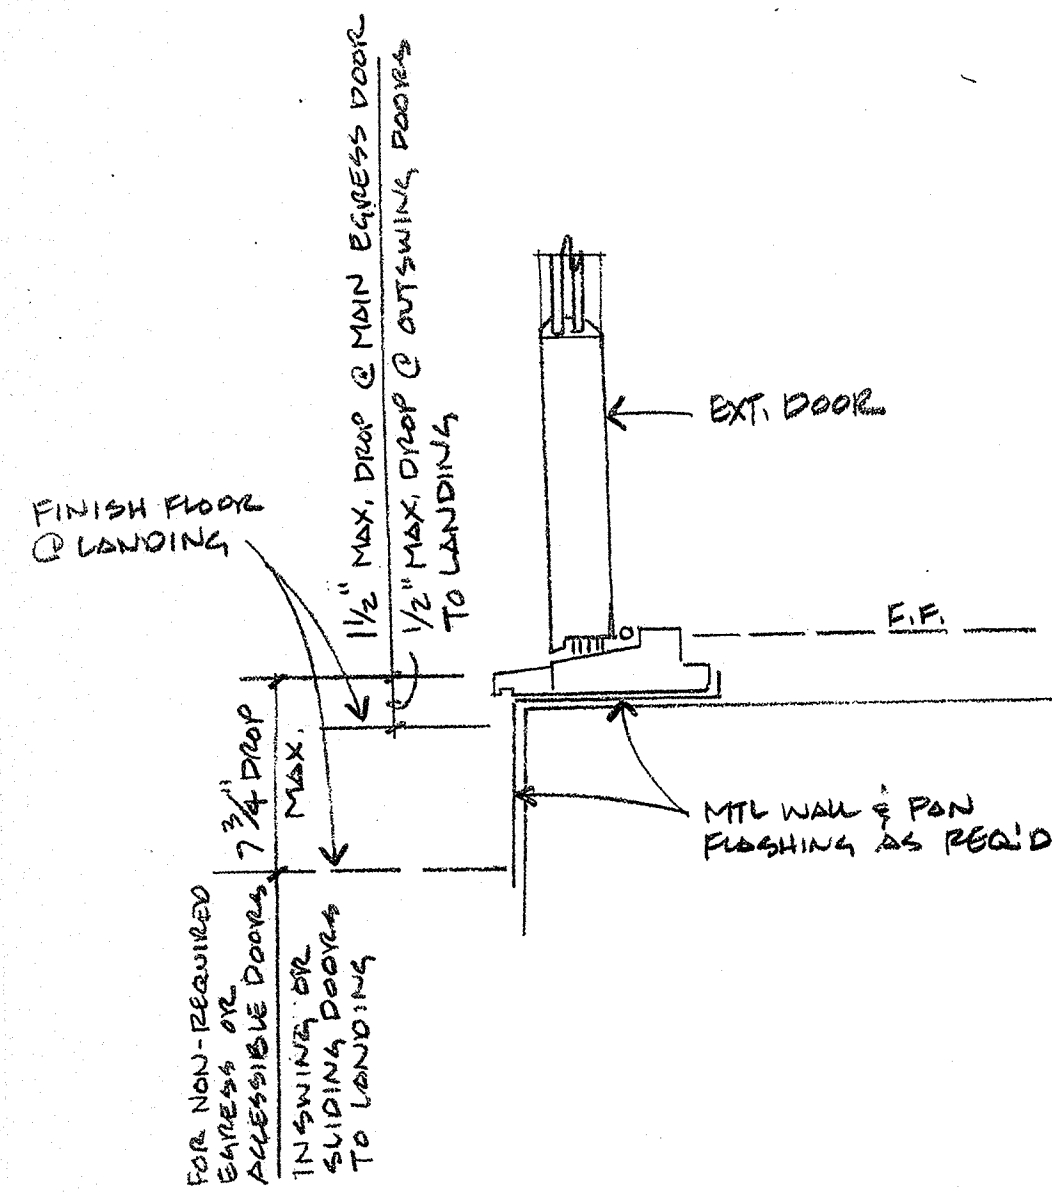 1½" MAX. DROP @ MAIN EGRESS DOOR
1/2" MAX. DROP @ OUTSWING DOORS
TO LANDING
EXT. DOOR
FINISH FLOOR
@ LANDING
F.F.
7¾" DROP
MAX.
MTL WALL & PAN
FLASHING AS REQ'D
FOR NON-REQUIRED
EGRESS OR
ACCESSIBLE DOORS
INSWING OR
SLIDING DOORS
TO LANDING